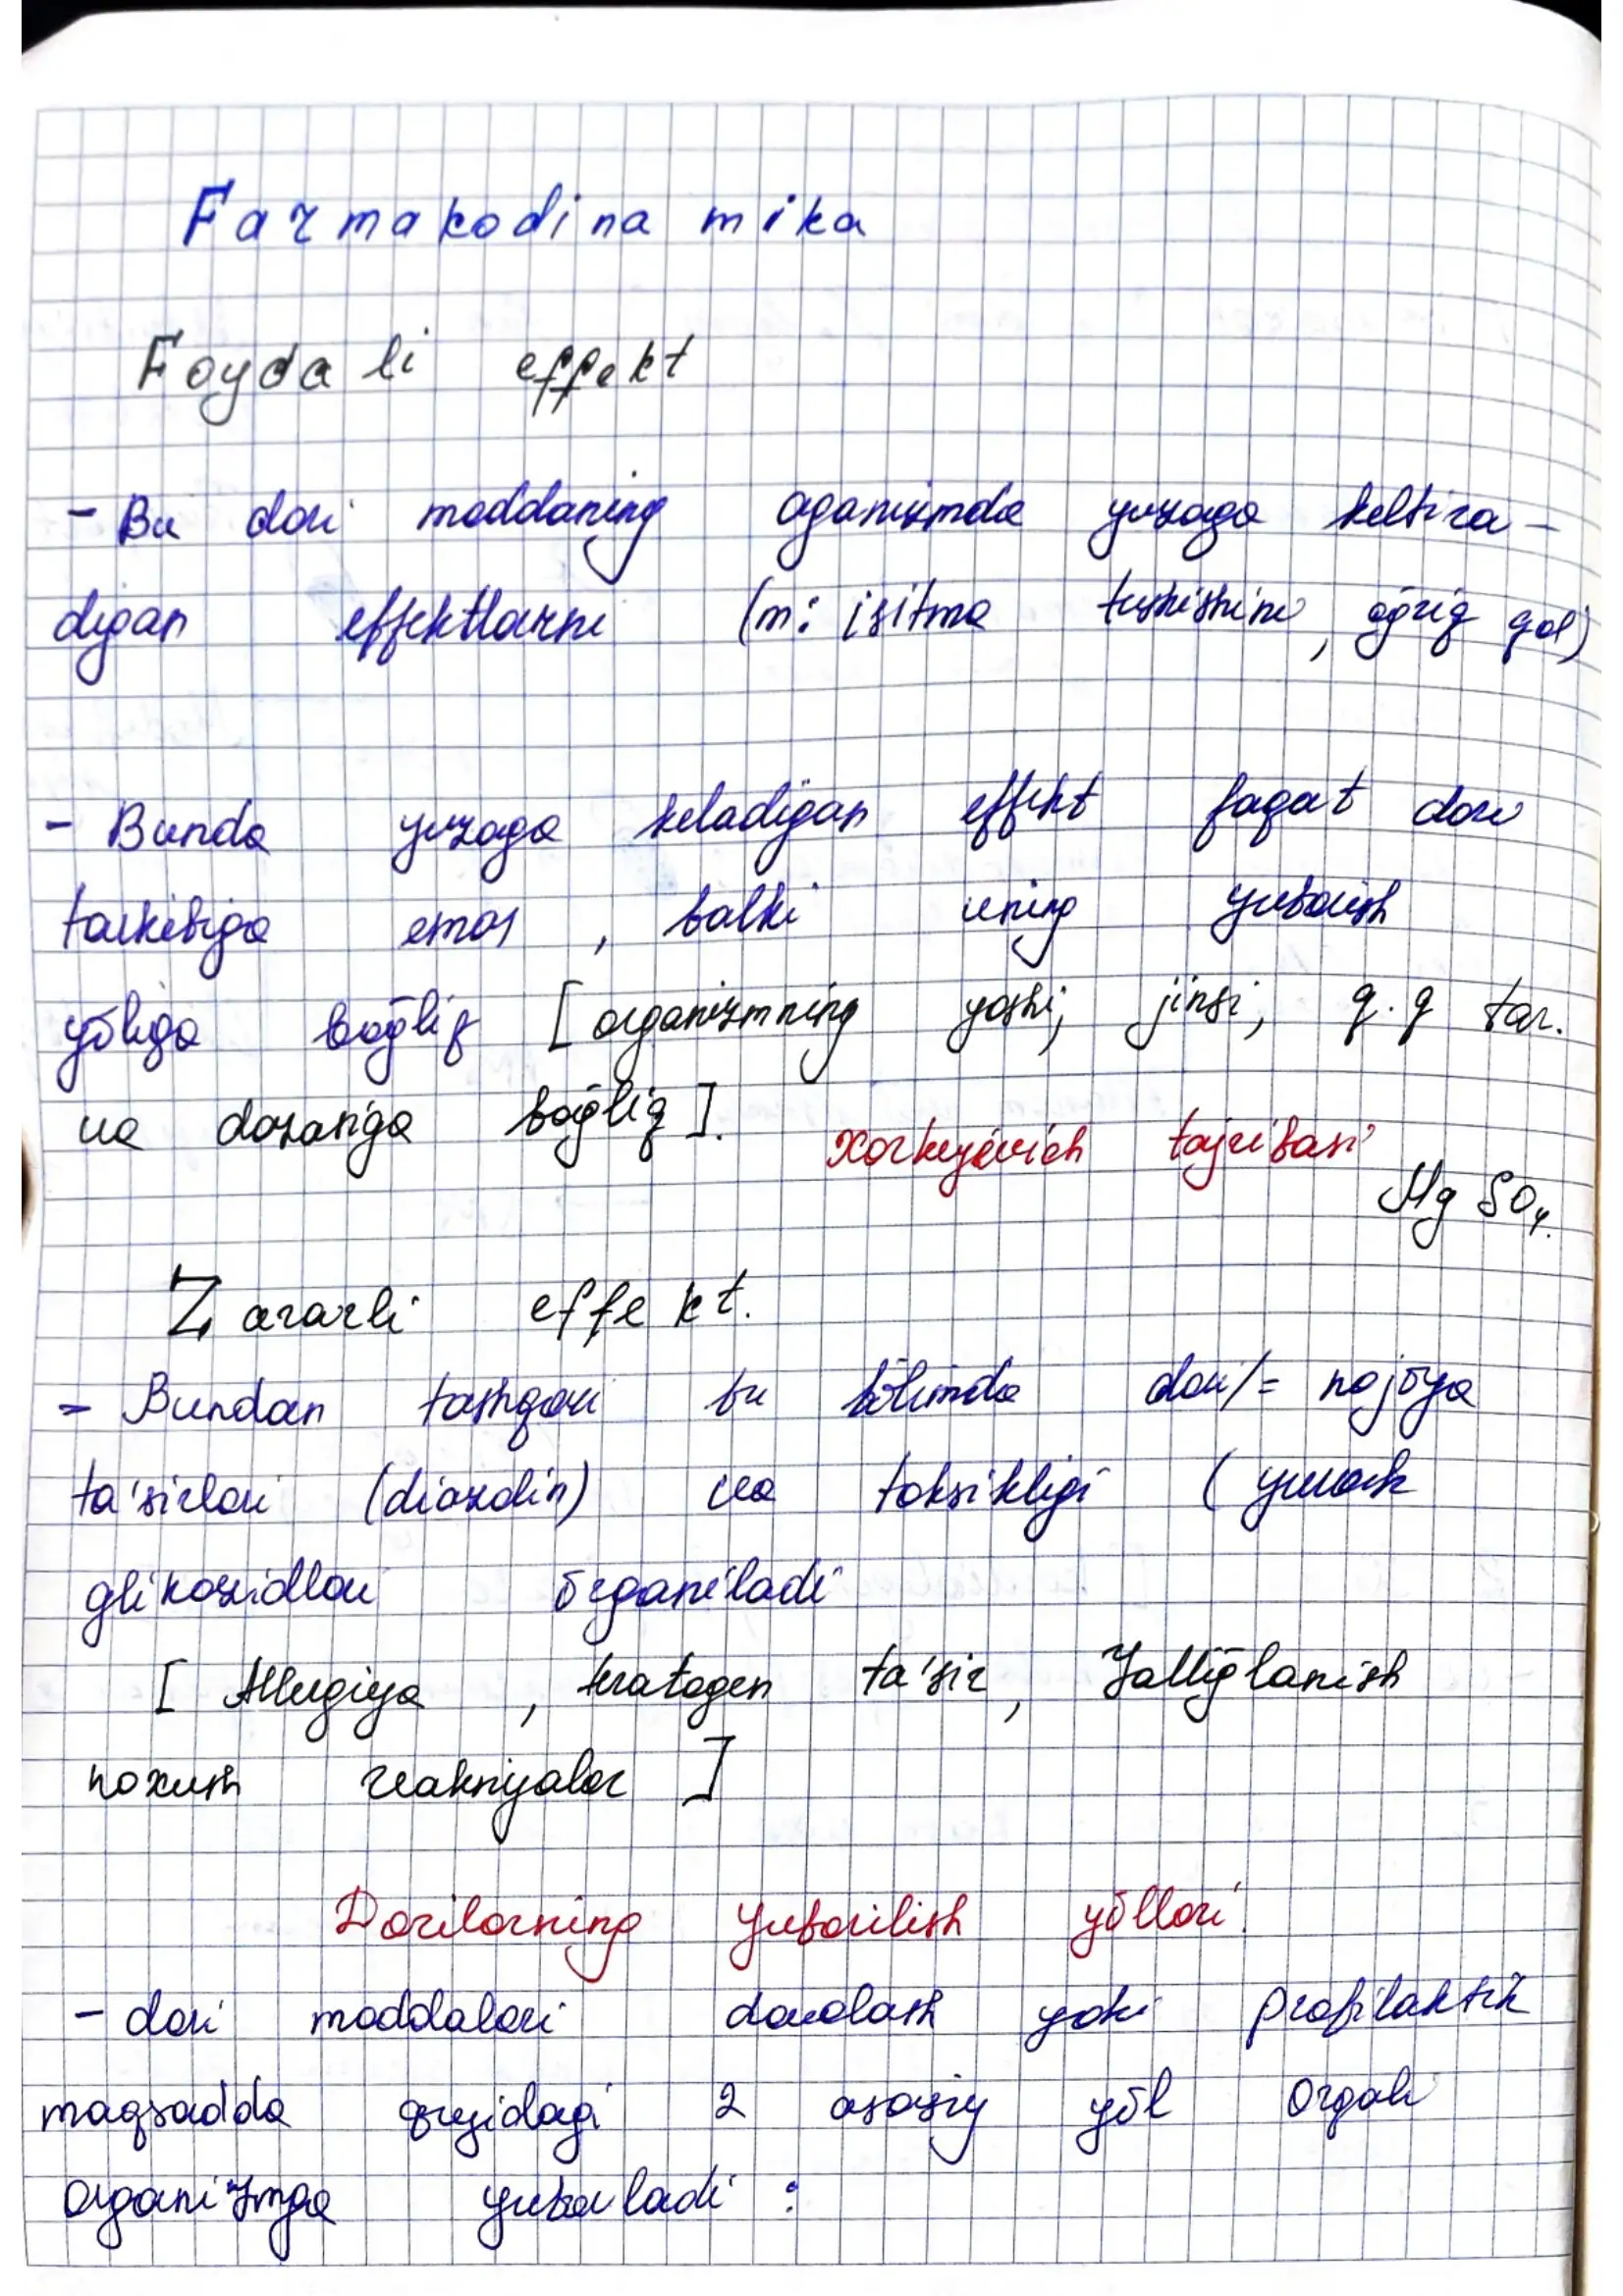 Farmakodinamika
Foydali effekt
- Bu dori moddaning organizmda yuzaga keltira-
digan effektlarni (m: isitma tushishini, og̅riq qol)
- Bunda yuzaga keladigan effekt faqat dori
tarkibiga emas, balki uning yuborish
yo̅liga bog̅liq [organizmning yoshi, jinsi, q.q tar.
va dozasiga bog̅liq].
xorkeyevich tajribasi
MgSO₄.
Zararli effekt.
- Bundan tashqari bu bo̅limda dori/= nojo̅ya
ta'sirlari (diazolin) va toksikligi (yurak
glikozidlari o̅rganiladi
[Allergiya, teratogen ta'sir, Yallig̅lanish
noxush reaksiyalar]
Dorilarning yuborilish yo̅llari.
- dori moddalari davolash yoki profilaktik
maqsadda quyidagi 2 asosiy yo̅l orqali
organizmga yuboriladi :